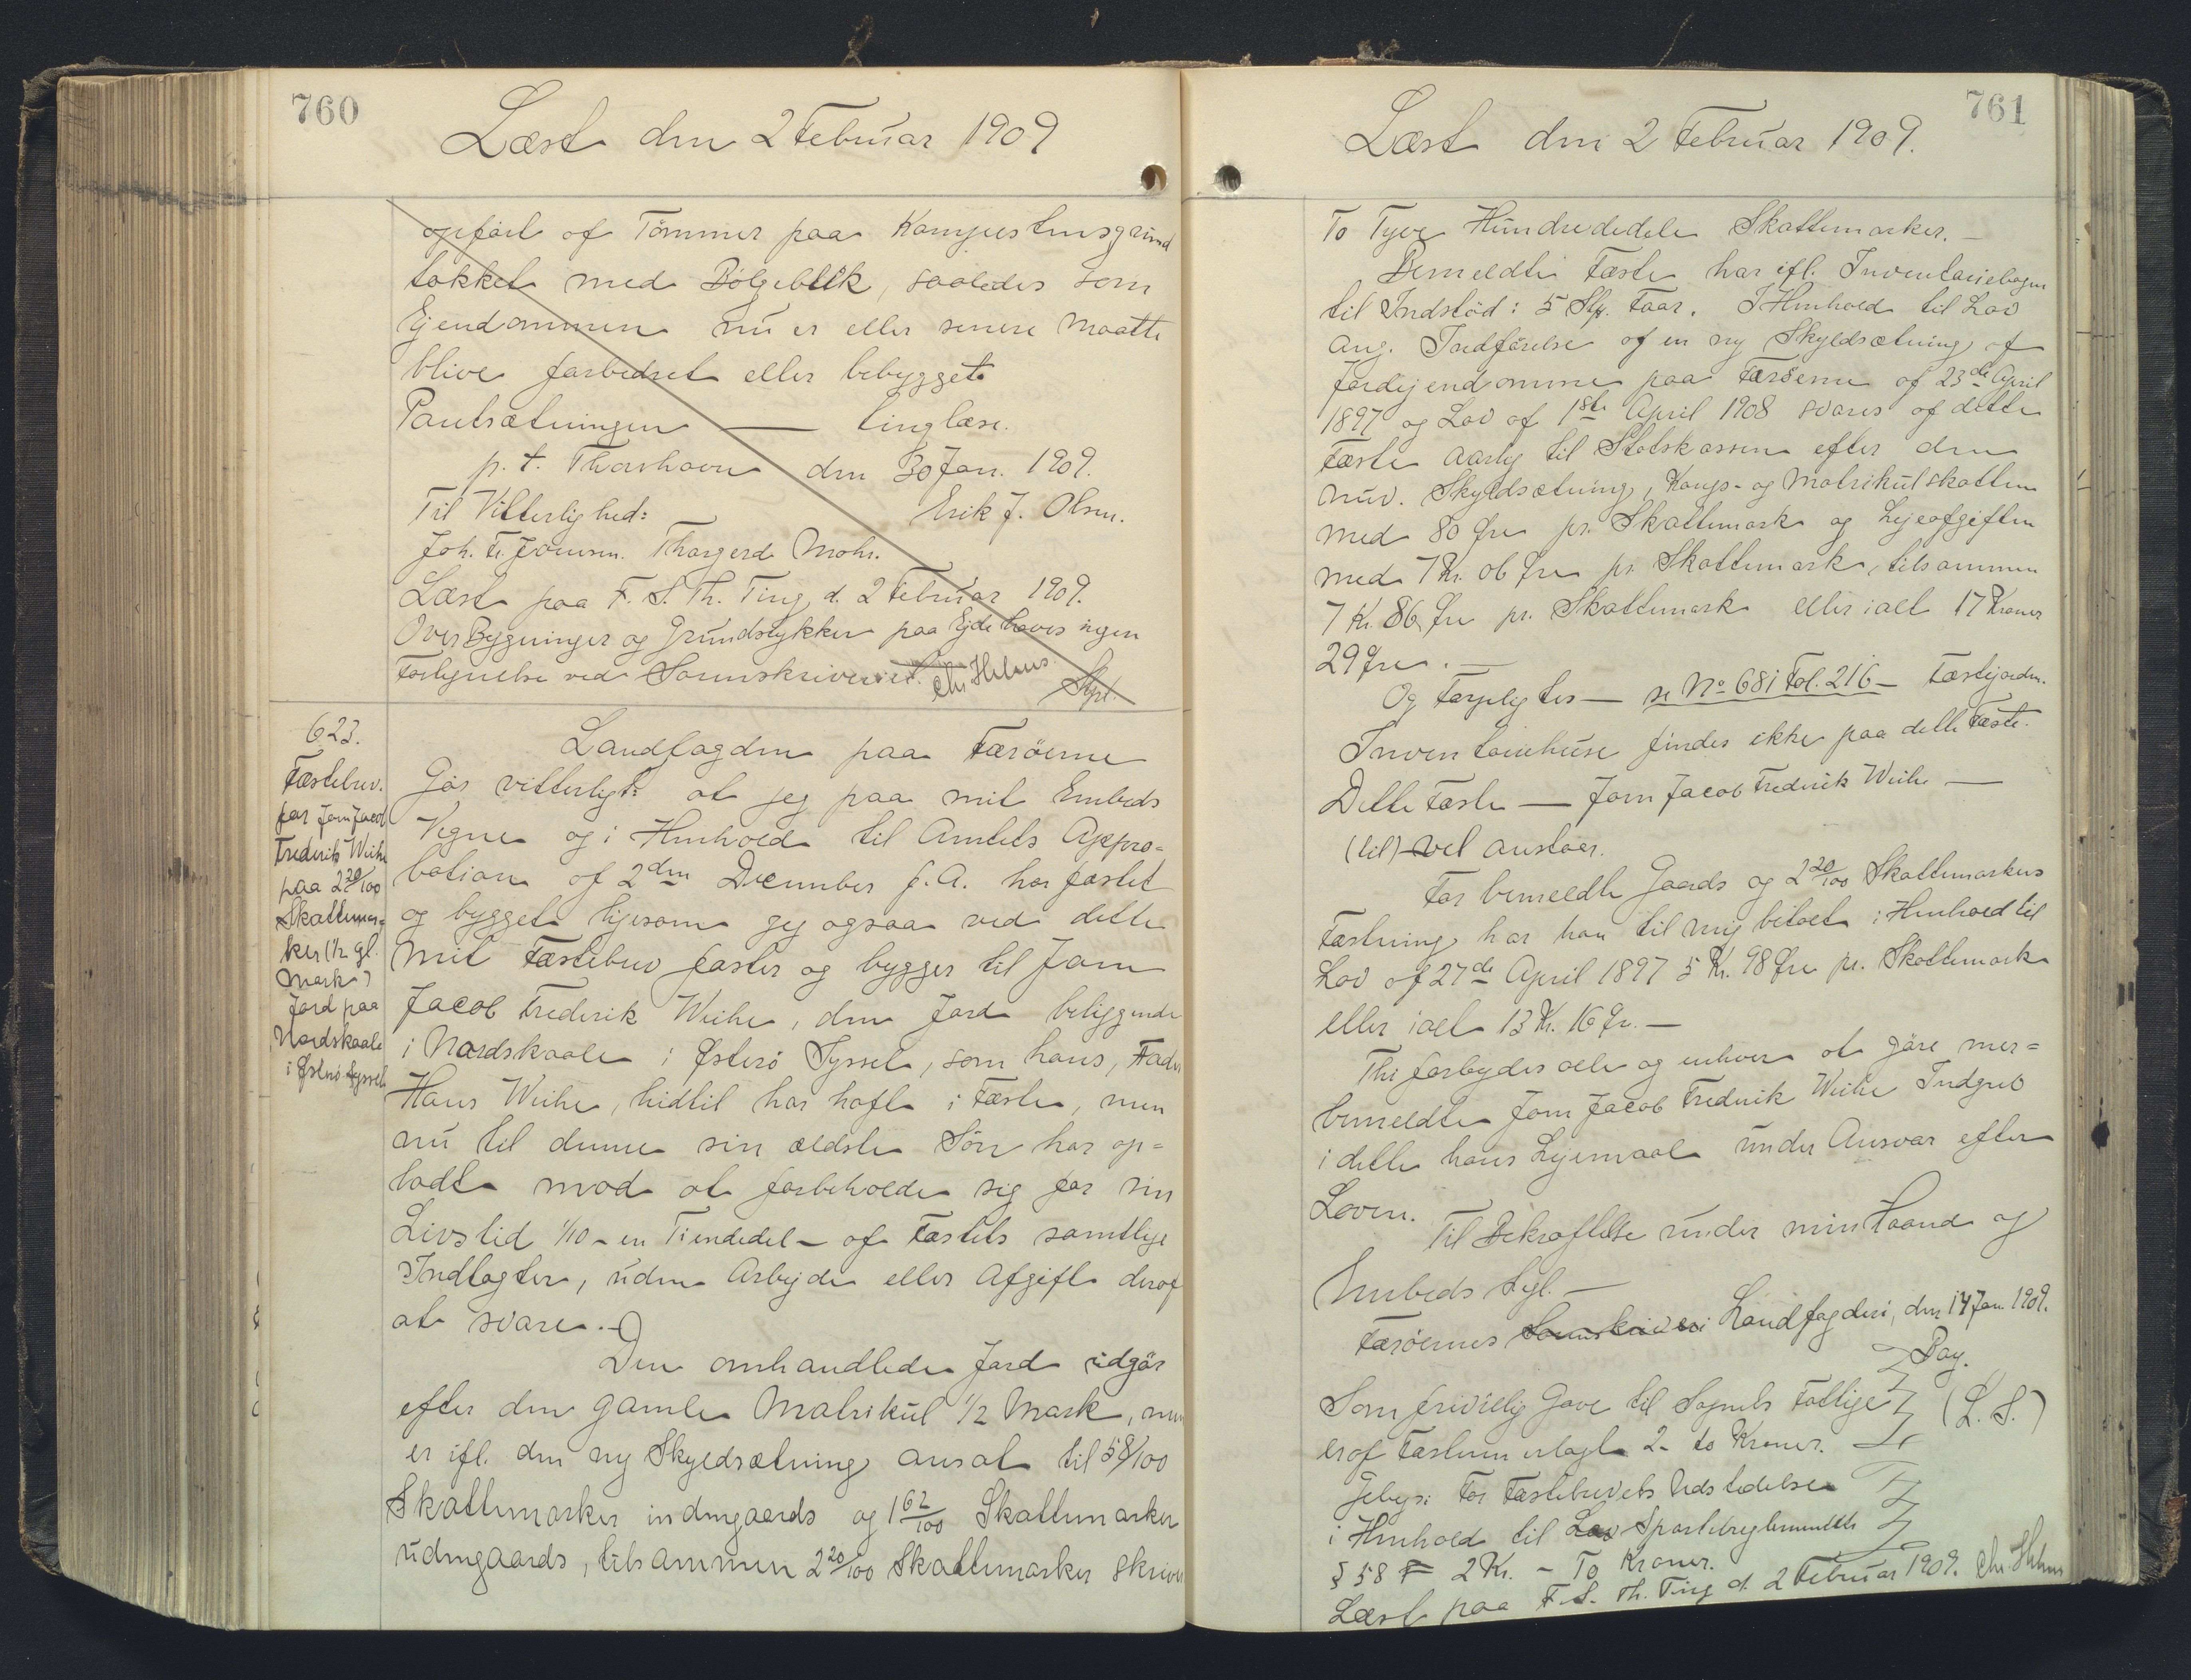 760
Læst den 2 Februar 1909
opført af Tømmer paa Kampestensgrund
tækket med Bölgeblik, saaledes som
Ejendommen nu er eller senere maatte
blive forbedret eller bebygget.
Pantsætningen — tinglæse.
p. t. Thorshavn den 30 Jan. 1909.
Til Vitterlighed: Erik J. Olsen.
Joh. Fr. Joensen. Thorgerd Mohr.
Læst paa F. S. Th. Ting d. 2 Februar 1909.
Over Bygninger og Grundstykker paa Ejde haves ingen
Forlignelse ved Sorenskriveriet. Chr. Helms
Skpl.
623.
Fæstebrev.
for Jom Jacob
Frederik Weihe
paa 2 20/100
Skattemar=
ker (1/2 gl.
Mark)
Jord paa
Nordskaale
i Østerö Syssel
Landfogden paa Færöerne
Gör vitterligt: at jeg paa mit Embeds
Vegne og i Henhold til Amtets Appro=
bation af 2den December f. A. har fæstet
og bygget ligesom jeg ogsaa ved dette
mit Fæstebrev fæster og bygger til Jom
Jacob Frederik Weihe, den Jord beliggende
i Nordskaale i Østerö Syssel, som hans, Fader
Hans Weihe, hidtil har haft i Fæste, men
nu til denne sin ældste Sön har op=
ladt mod at forbeholde sig for sin
Livstid 1/10 - en Tiendedel - af Fæstets samtlige
Indtægter, uden Arbejde eller Afgift deraf
at svare. -
Den omhandlede Jord udgör
efter den gamle Matrikul 1/2 Mark, men
er ifl. den ny Skyldsætning ansat til 58/100
Skattemarker indengaards og 1 62/100 Skattemarker
udengaards, tilsammen 2 20/100 Skattemarker skriver
761
Læst den 2 Februar 1909.
To Tyve Hundrededele Skattemarker. -
Bemeldte Fæste har ifl. Inventariebogen
til Indstöd: 5 Stk. Faar. I Henhold til Lov
ang. Indförelse af en ny Skyldsætning af
Jordejendomme paa Færöerne af 23de April
1897 og Lov af 1ste April 1908 svares af dette
Fæste aarlig til Statskassen efter den
nuv. Skyldsætning, Konge- og Matrikulskatten
med 80 Øre pr. Skattemark og Lejeafgiften
med 7 Kr. 06 Øre pr. Skattemark, tilsammen
7 Kr. 86 Øre pr. Skattemark eller ialt 17 Kroner
29 Øre. -
Og forpligtes — se No 681 Fol. 216 — Fæstejorden.
Inventariehuse findes ikke paa dette Fæste.
Dette Fæste — Jom Jacob Frederik Weihe —
(til) vel anstaar.
For bemeldte Gaards og 2 20/100 Skattemarkers
Fæstning har han til mig betalt i Henhold til
Lov af 27de April 1897 5 Kr. 98 Øre pr. Skattemark
eller ialt 13 Kr. 16 Ør. -
Thi forbydes alle og enhver at göre mer=
bemeldte Jom Jacob Frederik Weihe Indgreb
i dette hans Lejemaal under Ansvar efter
Loven.
Til Bekræftelse under min Haand og
Embeds Segl. -
Færöernes Sorenskriveri Landfogderi, den 14 Jan. 1909.
Bay.
(L. S.)
Som frivillig Gave til Sognets Fattige
er af Fæsteren erlagt 2 - to Kroner.
Gebyr: For Fæstebrevets Udstedelse
i Henhold til Lov Sportelreglementets
§ 58 F 2 Kr. - To Kroner.
Læst paa F. S. Th. Ting d. 2 Februar 1909. Chr. Helms